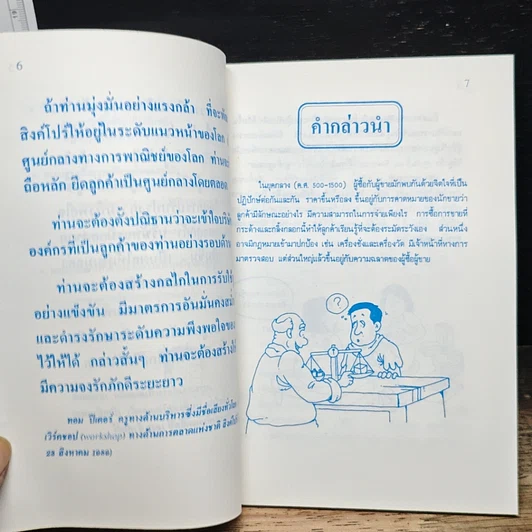 6
ถ้าท่านมุ่งมั่นอย่างแรงกล้า ที่จะ
สิงค์โปร์ให้อยู่ในระดับแนวหน้าของโลก
ศูนย์กลางทางการพาณิชย์ของโลก
ถือหลัก ยึดลูกค้าเป็นศูนย์กลางโดยตลอด
ท่านจะต้องตั้งปณิธานว่าจะเข้าใจบริษัท
องค์กรที่เป็นลูกค้าของท่านอย่างรอบด้าน
ท่านจะต้องสร้างกลไกในการรับใช้
อย่างแข็งขัน มีมาตรการอันมั่นคง
และดำรงรักษาระดับความพึงพอใจของ
ไว้ให้ได้ กล่าวสั้นๆ ท่านจะต้องสร้าง
มีความจงรักภักดีระยะยาว
ทอม ปีเตอร์ ครูทางด้านบริหารซึ่งมีชื่อเสียงทั่วโลก
เวิร์คชอป (workshop) ทางด้านการตลาดแห่งชาติ
28 สิงหาคม
7
คำกล่าวนำ
ในยุคกลาง (ค.ศ. 500-1500) ผู้ซื้อกับผู้ขายมักพบกันด้วยจิตใจที่เป็น
ปฏิปักษ์ต่อกันและกัน ราคาขึ้นหรือลง ขึ้นอยู่กับการคาดหมายของนักขายว่า
ลูกค้ามีลักษณะอย่างไร มีความสามารถในการจ่ายเพียงไร การซื้อการขายที่
กระด้างและกลิ้งกลอกนี้ทำให้ลูกค้าเรียนรู้ที่จะระมัดระวังเอง ส่วนหนึ่ง
อาจมีกฎหมายเข้ามาปกป้อง เช่น เครื่องชั่งและเครื่องวัด มีเจ้าหน้าที่ทางการ
มาตรวจสอบ แต่ส่วนใหญ่แล้วขึ้นอยู่กับความฉลาดของผู้ซื้อผู้ขาย
?